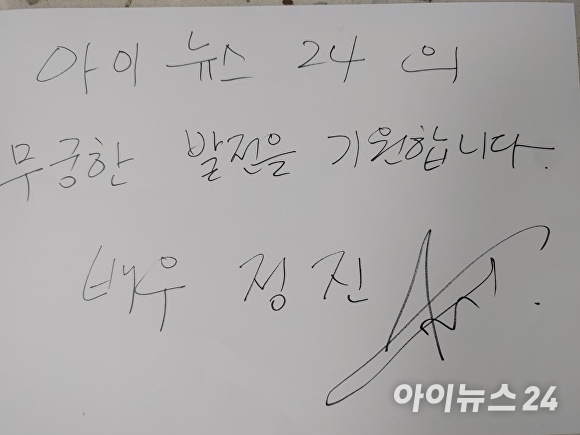 아이 뉴스 24 의
무궁한 발전을 기원합니다.
배우 정 진
아이뉴스24